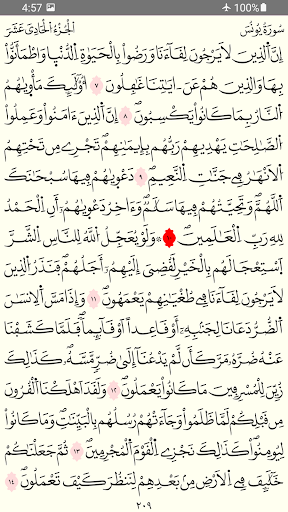 4:57 100%
سُورَةُ يُونُسَ الجُزْءُ الحَادِي عَشَرَ
إِنَّ اَلذِينَ لَا يَرْجُونَ لِقَآءَنَا وَرَضُواْ بِالْحَيَوٰةِ اِلدُّنْي۪ا وَاطْمَأَنُّواْ
بِهَا وَالذِينَ هُمْ عَنَ ـ ايَٰتِنَا غَٰفِلُونَ ٧ أُوْلَٰٓئِكَ مَأْو۪يٰهُمُ
النَّارُ بِمَا كَانُواْ يَكْسِبُونَ ٨ إِنَّ اَلذِينَ ءَامَنُواْ وَعَمِلُواْ
الصَّٰلِحَٰتِ يَهْدِيهِمْ رَبُّهُم بِإِيمَٰنِهِمْ تَجْرِے مِن تَحْتِهِمُ
الَانْهَٰرُ فِے جَنَّٰتِ اِلنَّعِيمِ ٩ دَعْو۪يٰهُمْ فِيهَا سُبْحَٰنَكَ
اَللَّهُمَّ وَتَحِيَّتُهُمْ فِيهَا سَلَٰمٌ وَءَاخِرُ دَعْو۪يٰهُمُۥٓ أَنِ اِلْحَمْدُ
لِلهِ رَبِّ اِلْعَٰلَمِينَ ١٠ ۞ وَلَوْ يُعَجِّلُ اُللَّهُ لِلنَّاسِ اِلشَّرَّ
اَسْتِعْجَالَهُم بِالْخَيْرِ لَقُضِيَ إِلَيْهِمُۥٓ أَجَلُهُمْ فَنَذَرُ اُلذِينَ
لَا يَرْجُونَ لِقَآءَنَا فِے طُغْيَٰنِهِمْ يَعْمَهُونَ ١١ وَإِذَا مَسَّ اَلِانسَٰنَ
اَلضُّرُّ دَعَانَا لِجَنۢبِهِۦٓ أَوْ قَاعِداً اَوْ قَآئِماً فَلَمَّا كَشَفْنَا
عَنْهُ ضُرَّهُۥ مَرَّ كَأَن لَّمْ يَدْعُنَآ إِلَيٰ ضُرٍّ مَّسَّهُۥ كَذَٰلِكَ
زُيِّنَ لِلْمُسْرِفِينَ مَا كَانُواْ يَعْمَلُونَ ١٢ وَلَقَدَ اَهْلَكْنَا اَلْقُرُونَ
مِن قَبْلِكُمْ لَمَّا ظَلَمُواْ وَجَآءَتْهُمْ رُسُلُهُم بِالْبَيِّنَٰتِ وَمَا كَانُواْ
لِيُومِنُواْ كَذَٰلِكَ نَجْزِے اِلْقَوْمَ اَلْمُجْرِمِينَ ١٣ ثُمَّ جَعَلْنَٰكُمْ
خَلَٰٓئِفَ فِے اِلَارْضِ مِنۢ بَعْدِهِمْ لِنَنظُرَ كَيْفَ تَعْمَلُونَ ١٤
٢٠٩